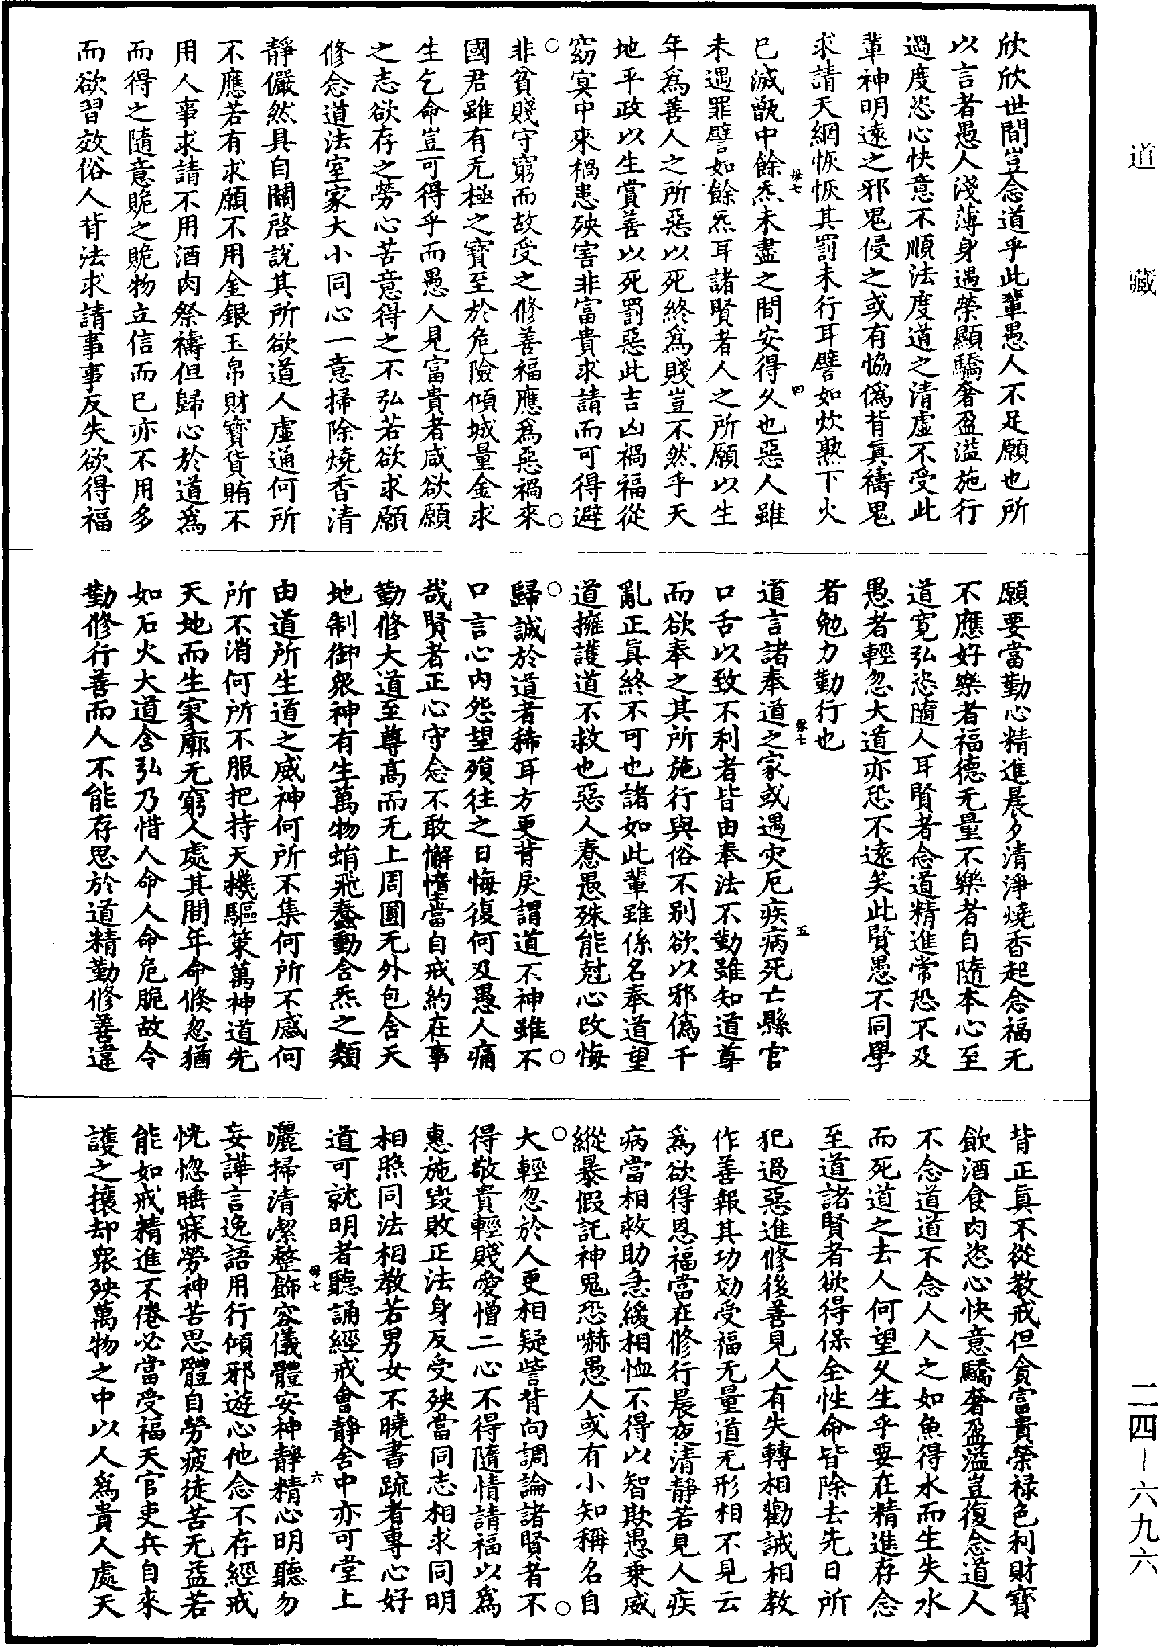 道藏
欣欣世間豈念道乎此輩愚人不足願也所
以言者愚人淺薄身遇榮顯驕奢盈溢施行
過度恣心快意不順法度道之清虛不受此
輩神明遠之邪鬼侵之或有恊僞背真禱鬼
求請天網恢恢其罰未行耳譬如炊熟下火
已滅甑中餘炁未盡之間安得久也惡人雖
未遇罪譬如餘炁耳諸賢者人之所願以生
年爲善人之所惡以死終爲賤豈不然乎天
地平政以生賞善以死罰惡此吉凶禍福從
窈冥中來禍患殃害非富貴求請而可得避
非貧賤守窮而故受之修善福應爲惡禍來
國君雖有无極之寶至於危險傾城量金求
生乞命豈可得乎而愚人見富貴者咸欲願
之志欲存之勞心苦意得之不弘若欲求願
修念道法室家大小同心一意掃除燒香清
靜儼然具自關啓說其所欲道人虛通何所
不應若有求願不用金銀玉帛財寶貨賄不
用人事求請不用酒肉祭禱但歸心於道爲
而得之隨意賧之賧物立信而已亦不用多
而欲習效俗人背法求請事事反失欲得福
願要當勤心精進晨夕清淨燒香起念福无
不應好樂者福德无量不樂者自隨本心至
道寬弘恣隨人耳賢者念道精進常恐不及
愚者輕忽大道亦恐不遠矣此賢愚不同學
者勉力勤行也
道言諸奉道之家或遇灾厄疾病死亡縣官
口舌以致不利者皆由奉法不勤雖知道尊
而欲奉之其所施行與俗不別欲以邪僞干
亂正真終不可也諸如此輩雖係名奉道望
道擁護道不救也惡人惷愚殊能尅心改悔
歸誠於道者稀耳方更背戾謂道不神雖不
口言心內怨望殞往之日悔復何及愚人痛
哉賢者正心守念不敢懈惰當自戒約在事
勤修大道至尊高而无上周圓无外包含天
地制御衆神有生萬物蛸飛蠢動含炁之類
由道所生道之威神何所不集何所不感何
所不消何所不服把持天機驅策萬神道先
天地而生寥廓无窮人處其間年命倏忽猶
如石火大道含弘乃惜人命人命危脆故令
勤修行善而人不能存思於道精勤修善違
背正真不從教戒但貪富貴榮祿色利財寶
飲酒食肉恣心快意驕奢盈溢豈復念道人
不念道道不念人人之如魚得水而生失水
而死道之去人何望久生乎要在精進存念
至道諸賢者欲得保全性命皆除去先日所
犯過惡進修後善見人有失轉相勸誡相教
作善報其功効受福无量道无形相不見云
爲欲得恩福當在修行晨夜清靜若見人疾
病當相救助急緩相恤不得以智欺愚乘威
縱暴假託神鬼恐嚇愚人或有小知稱名自
大輕忽於人更相疑訾背向調論諸賢者不
得敬貴輕賤愛憎二心不得隨情請福以爲
惠施毀敗正法身反受殃當同志相求同明
相照同法相教若男女不曉書疏者專心好
道可就明者聽誦經戒會靜舍中亦可堂上
灑掃清潔整飾容儀體安神靜精心明聽勿
妄譁言逸語用行傾邪遊心他念不存經戒
恍惚睡寐勞神苦思體自勞疲徒苦无益若
能如戒精進不倦必當受福天官吏兵自來
護之攘却衆殃萬物之中以人爲貴人處天
二四-六九六